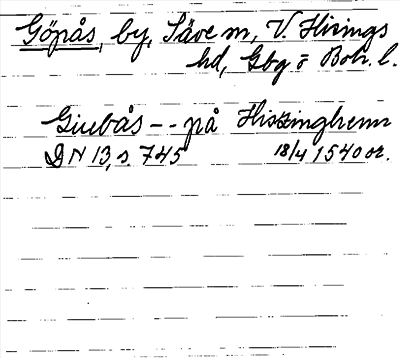 Göpås, by, Säve sn, V. Hisings
hd, Gbg o Boh. l.
Giubås -- på Hisszinghenn
DN 13, s. 745 18/4 1540 or.